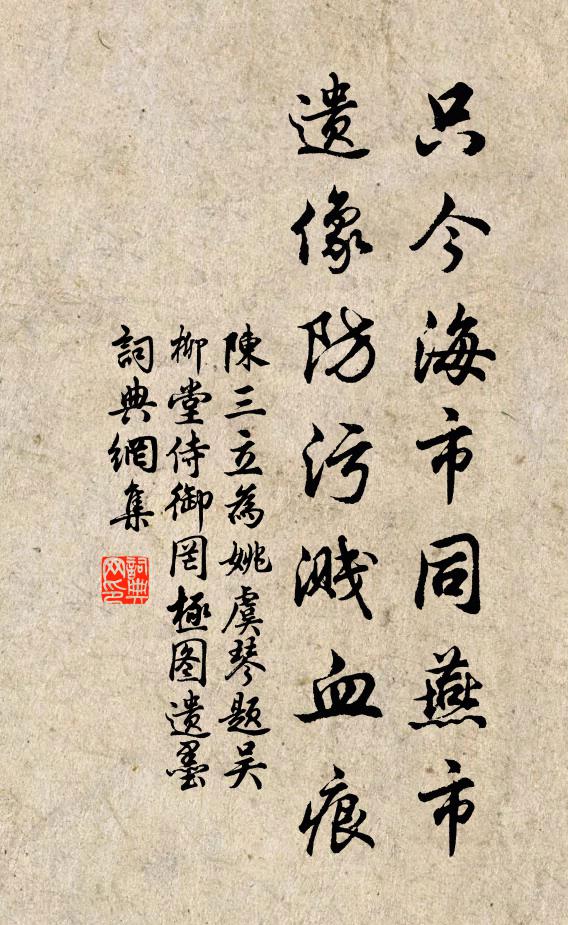 只今海市同燕市
遗像防污溅血痕
陳三立為姚虞琴题吴
柳堂侍御罔極图遗墨
詞典網集
詞典网印